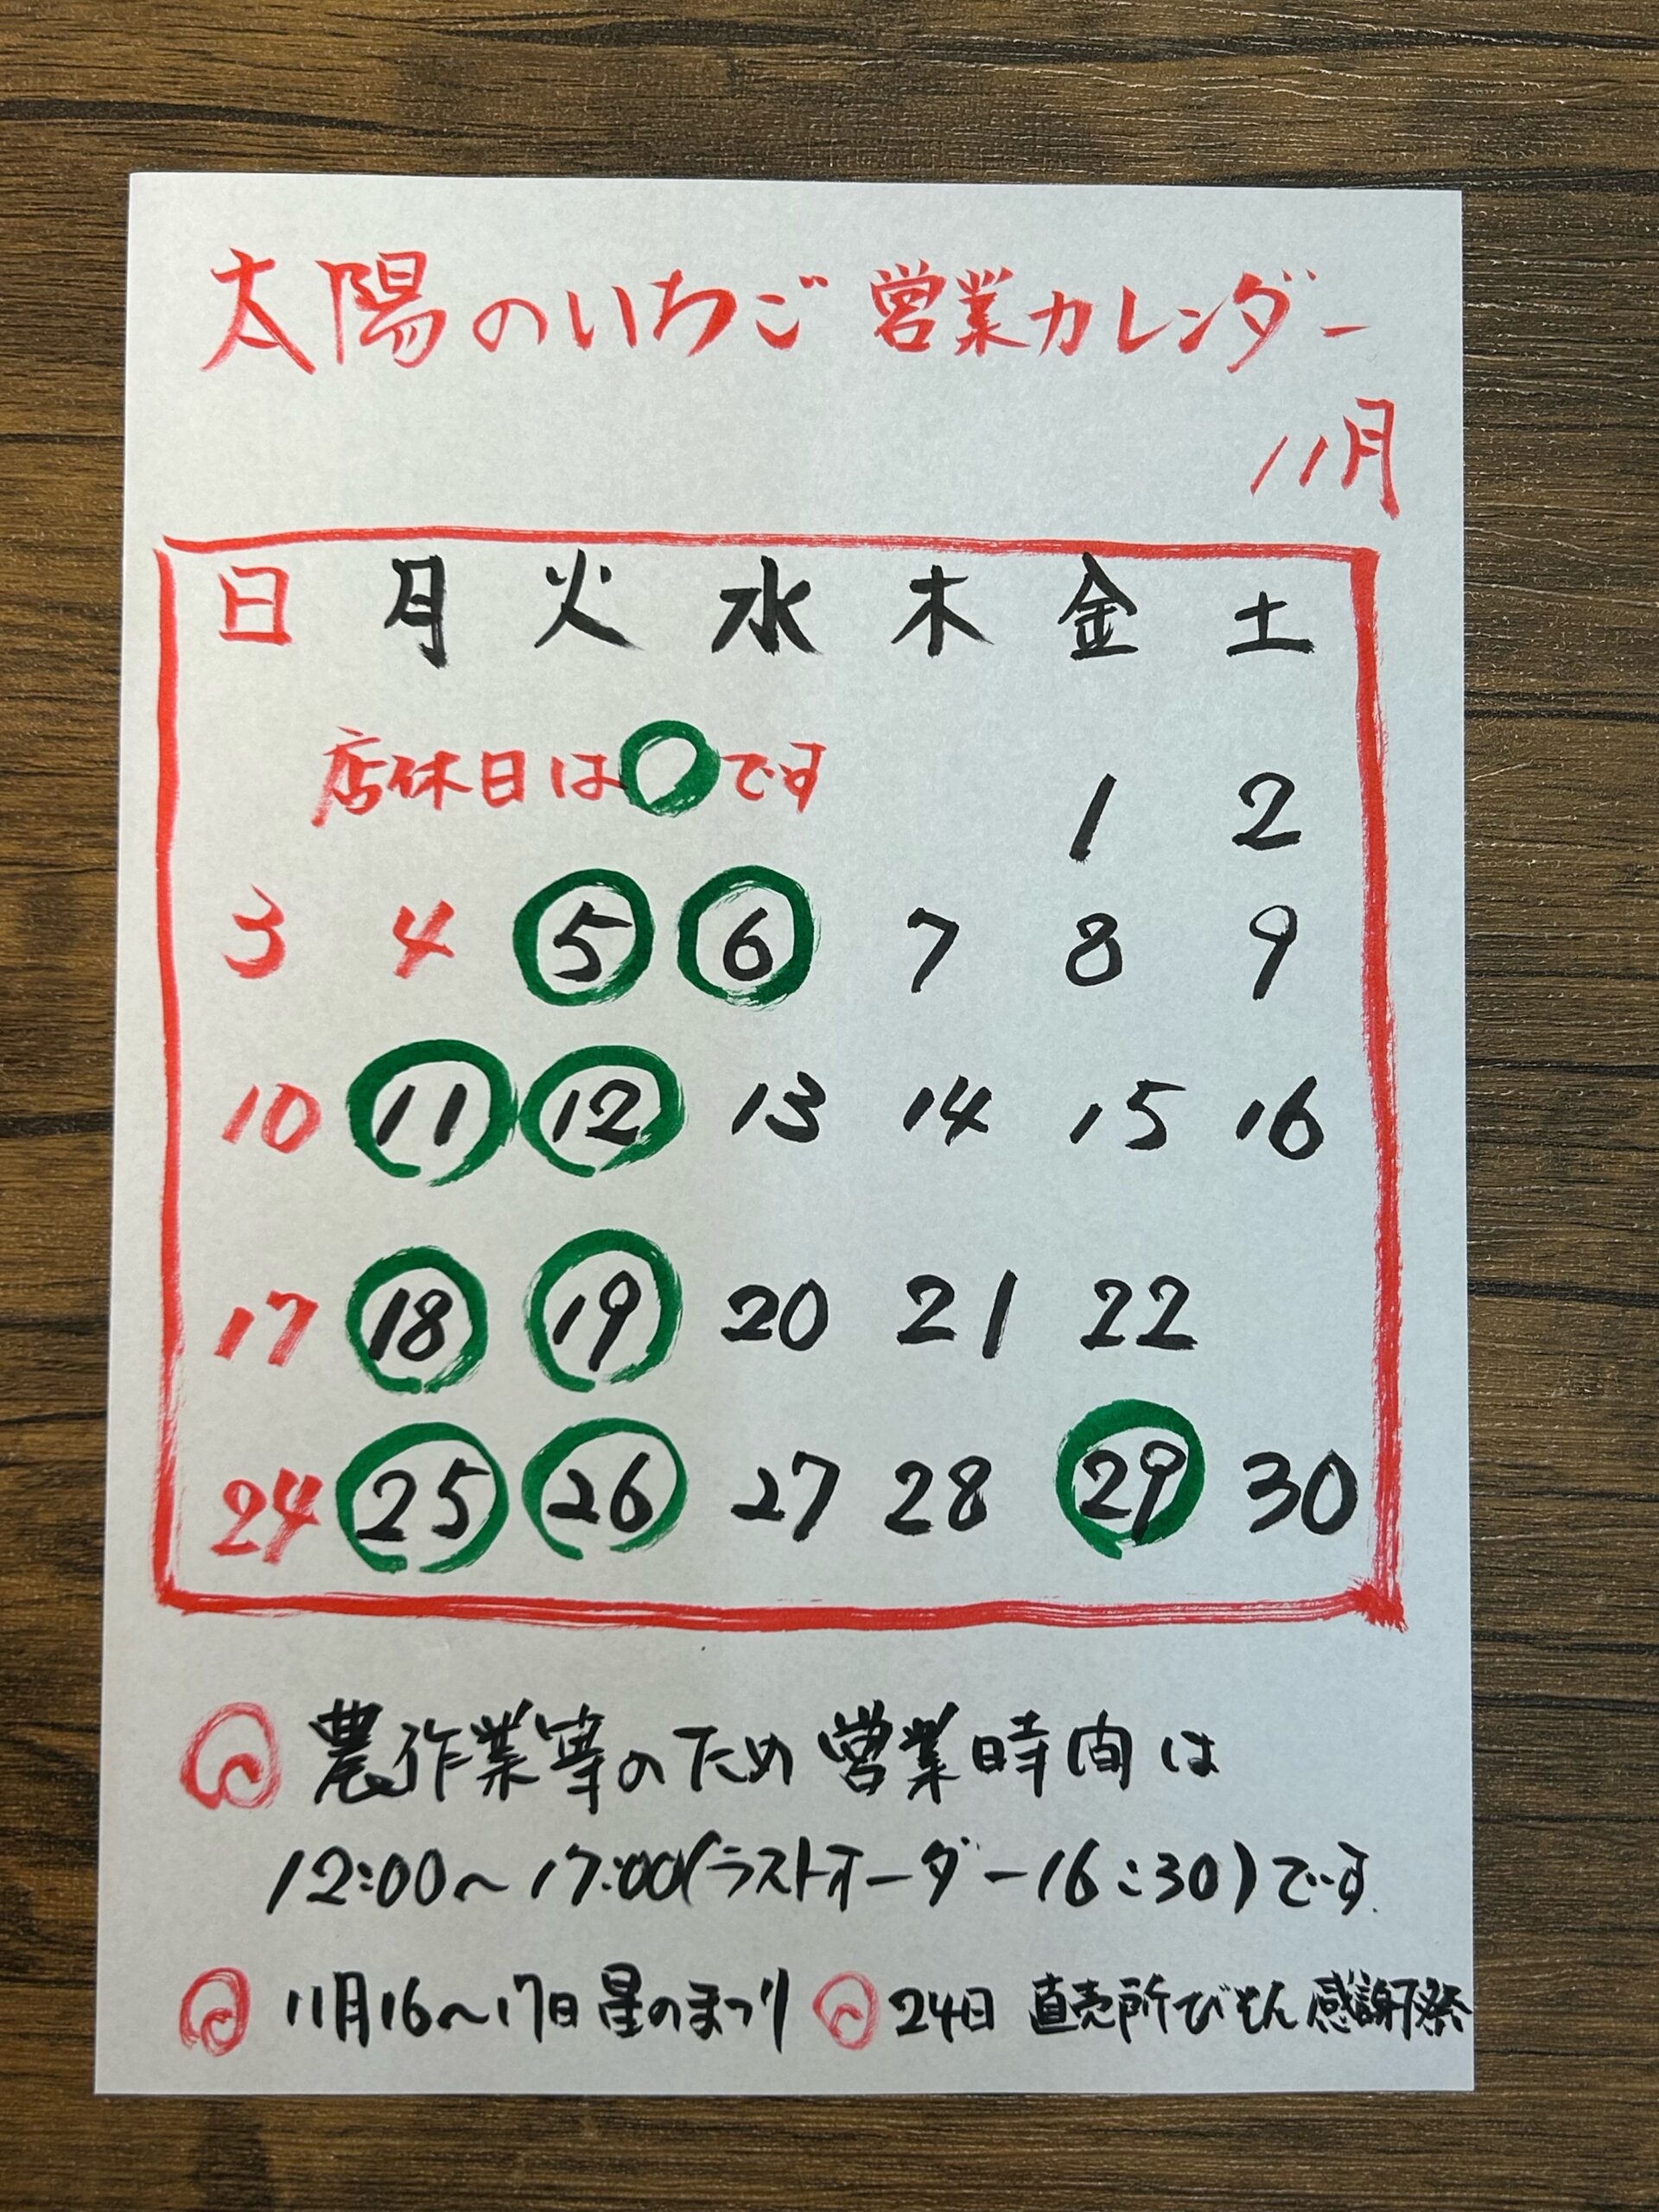 太陽のいちご 営業カレンダー
11月
日 月 火 水 木 金 土
店休日は○です 1 2
3 4 5 6 7 8 9
10 11 12 13 14 15 16
17 18 19 20 21 22
24 25 26 27 28 29 30
農作業等のため営業時間は
12:00〜17:00(ラストオーダー16:30)です.
11月16〜17日星のまつり 24日 直売所びそん感謝祭